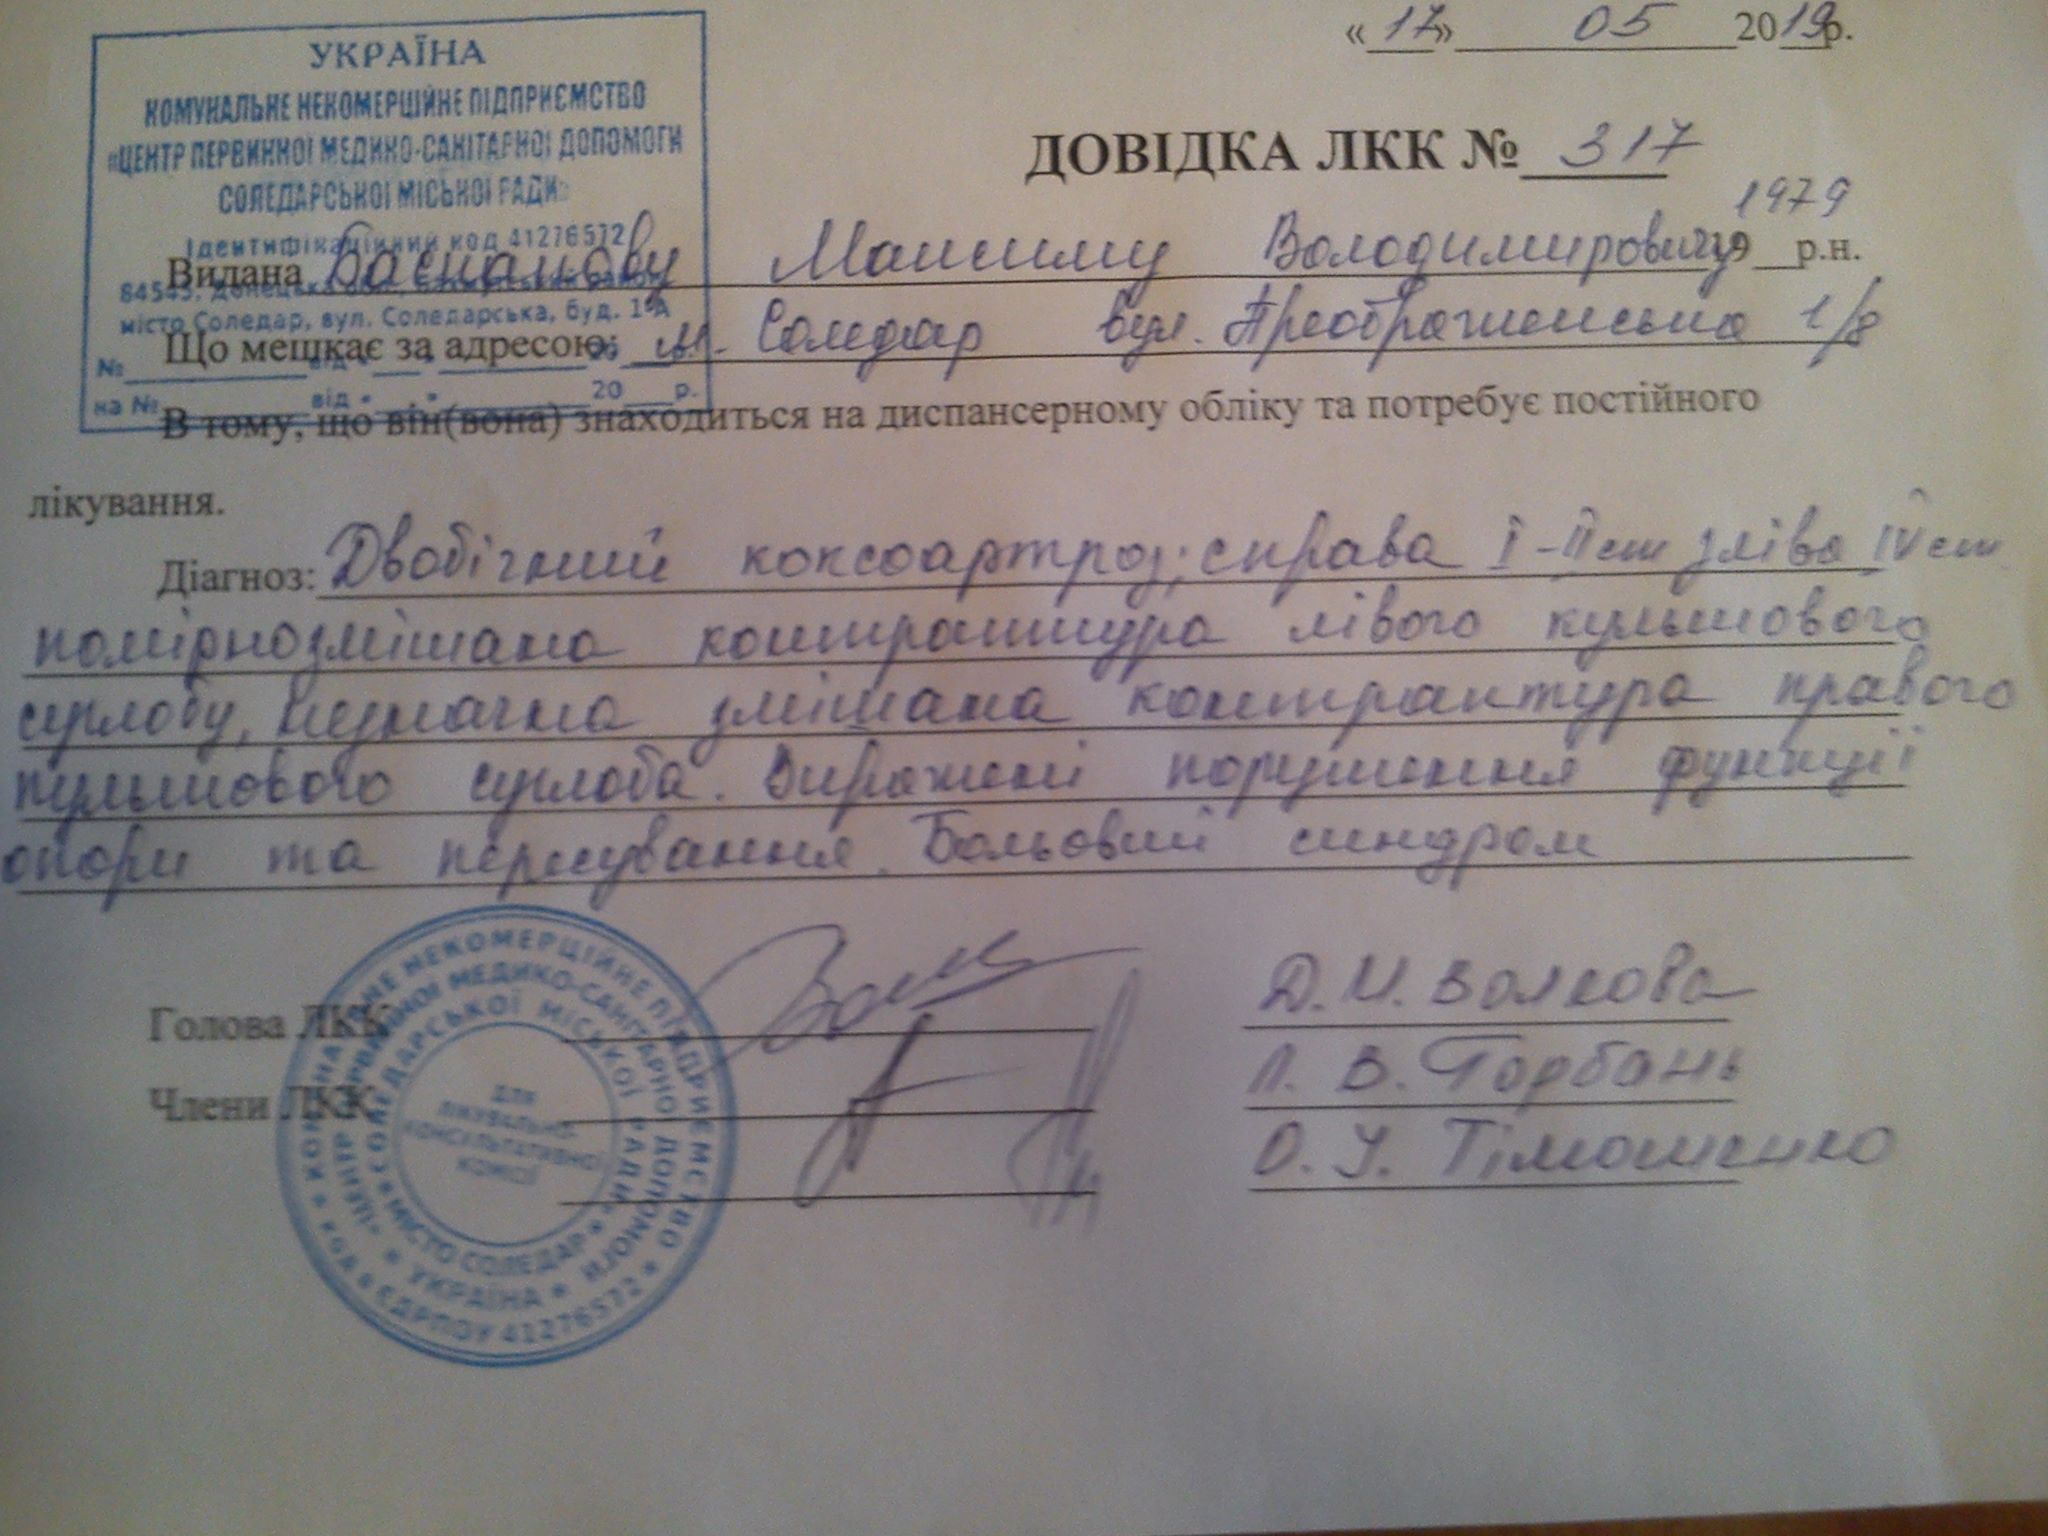 «17» 05 2019р.
УКРАЇНА
КОМУНАЛЬНЕ НЕКОМЕРЦІЙНЕ ПІДПРИЄМСТВО
«ЦЕНТР ПЕРВИННОЇ МЕДИКО-САНІТАРНОЇ ДОПОМОГИ
СОЛЕДАРСЬКОЇ МІСЬКОЇ РАДИ»
Ідентифікаційний код 41276572
84545, Донецька
місто Соледар, вул. Соледарська, буд. 1-А
№ від « » 20
на № від « » 20 р.
ДОВІДКА ЛКК № 317
1979
Видана Максиму Володимировичу р.н.
Що мешкає за адресою: м. Соледар вул. Преображенська 1/8
В тому, що він(вона) знаходиться на диспансерному обліку та потребує постійного
лікування.
Діагноз: Двобічний коксоартроз; справа I-II ст зліва IV ст
помірнозмішана контрактура лівого кульшового
суглобу, незначна змішана контрактура правого
кульшового суглоба. Виражені порушення функції
опори та пересування. Больовий синдром
Голова ЛКК Д. И. Волкова
Члени ЛКК Л. В. Горбань
О. У. Тімошенко
КОМУНАЛЬНЕ НЕКОМЕРЦІЙНЕ ПІДПРИЄМСТВО * КОД ЄДРПОУ 41276572 *
«ЦЕНТР ПЕРВИННОЇ МЕДИКО-САНІТАРНОЇ ДОПОМОГИ * УКРАЇНА *
СОЛЕДАРСЬКОЇ МІСЬКОЇ РАДИ» * МІСТО СОЛЕДАР *
ДЛЯ
ЛІКУВАЛЬНО-
КОНСУЛЬТАТИВНОЇ
КОМІСІЇ